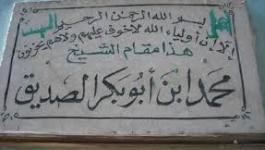 بسم الله الرحمن الرحيم
ألا إن أولياء الله لا خوف عليهم ولا هم يحزنون
هذا مقام الشيخ
محمد ابن أبوبكر الصديق